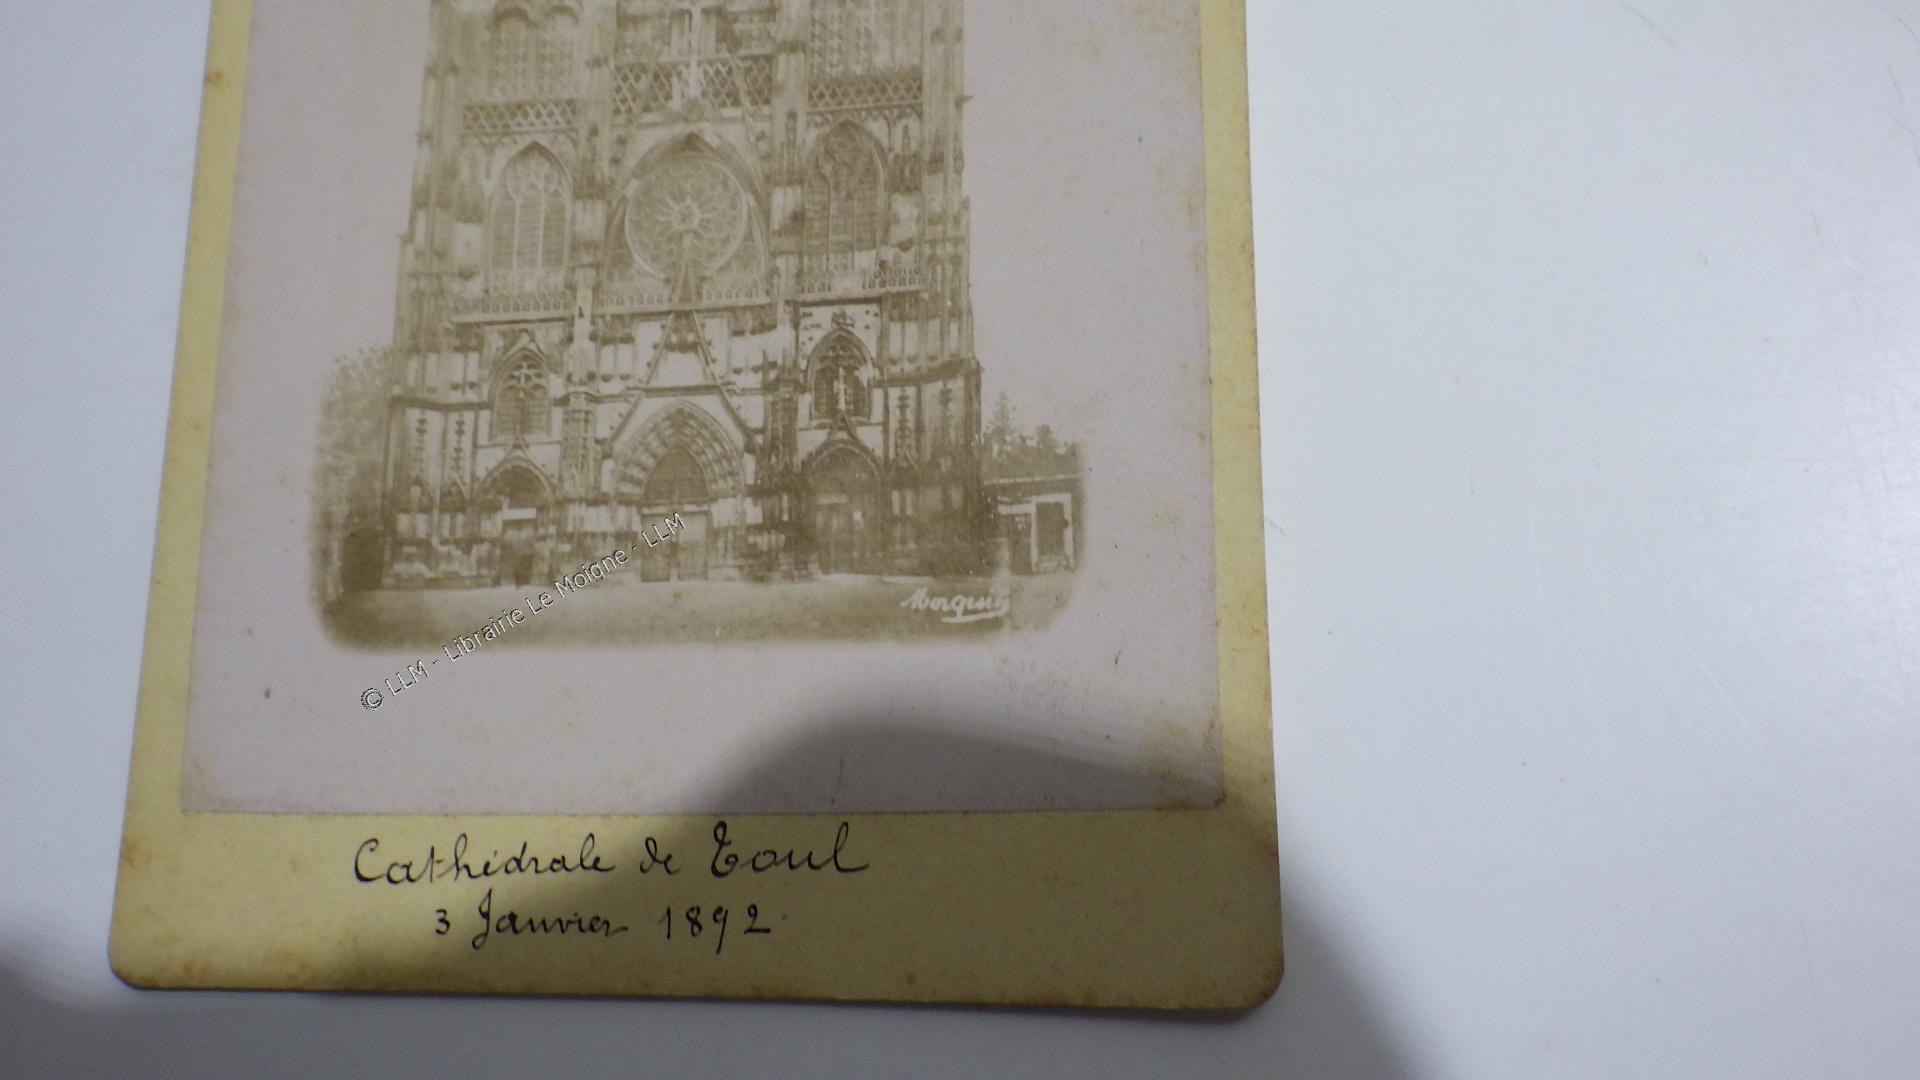 Morquin
© LLM - Librairie Le Moigne - LLM
Cathédrale de Toul
3 Janvier 1892.